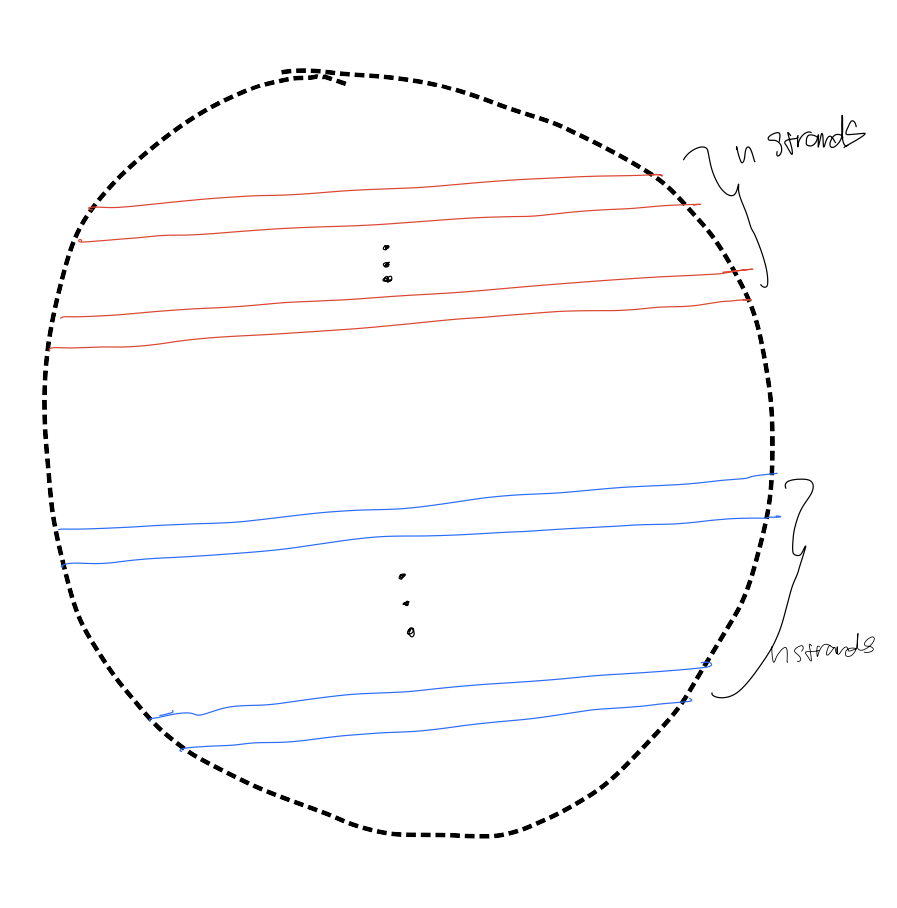 n strands
n strands